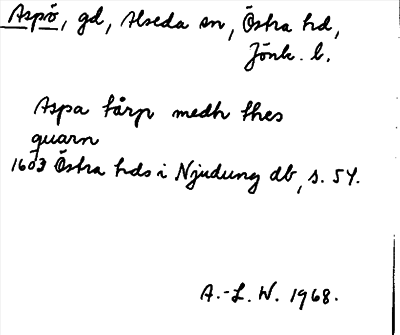 Aspö, gd, Alseda sn, Östra hd,
Jönk. l.
Aspa tårp medh thes
quarn
1603 Östra hds i Njudung db, s. 54.
A.-L. W. 1968.